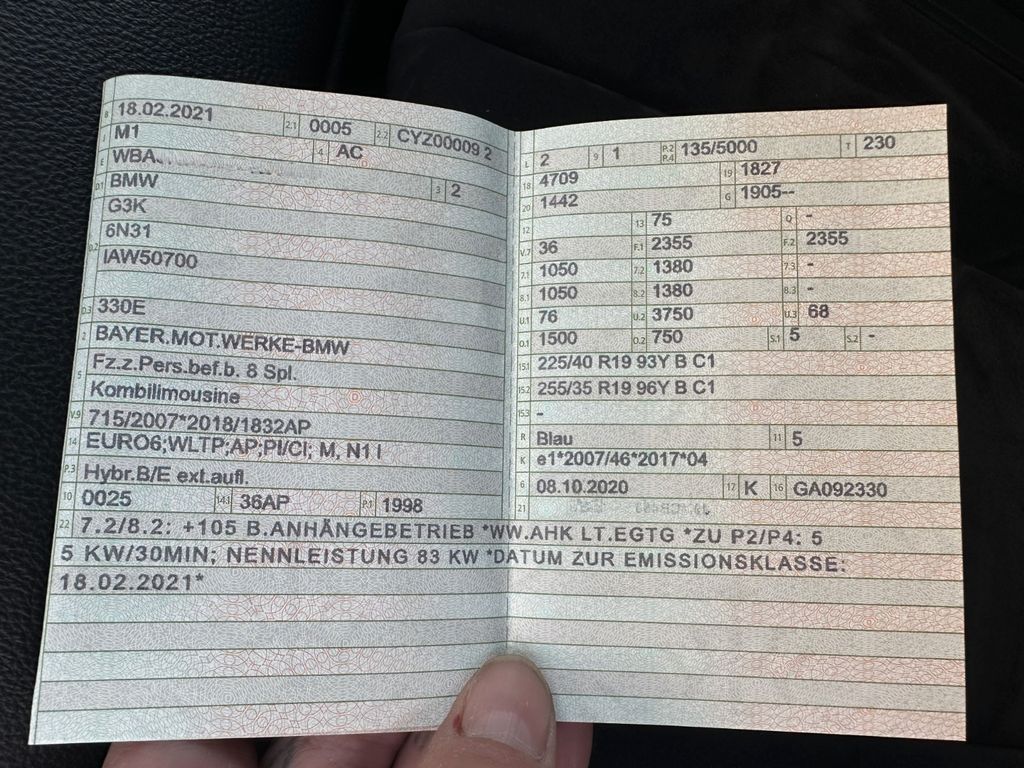 B 18.02.2021 2.1 0005 2.2 CYZ00009 2
J M1 4 AC
E WBA
D.1 BMW 3 2
G3K
6N31
D.2 IAW50700
D.3 330E
2 BAYER.MOT.WERKE-BMW
5 Fz.z.Pers.bef.b. 8 Spl.
Kombilimousine
V.9 715/2007*2018/1832AP
14 EURO6;WLTP;AP;PI/CI; M, N1 I
P.3 Hybr.B/E ext.aufl.
10 0025 14.1 36AP P.1 1998
L 2 9 1 P.2 P.4 135/5000 T 230
18 4709 19 1827
20 1442 G 1905--
12 13 75 Q -
V.7 36 F.1 2355 F.2 2355
7.1 1050 7.2 1380 7.3 -
8.1 1050 8.2 1380 8.3 -
U.1 76 U.2 3750 U.3 68
O.1 1500 O.2 750 S.1 5 S.2 -
15.1 225/40 R19 93Y B C1
15.2 255/35 R19 96Y B C1
15.3 -
R Blau 11 5
K e1*2007/46*2017*04
6 08.10.2020 17 K 16 GA092330
21
22 7.2/8.2: +105 B.ANHÄNGEBETRIEB *WW.AHK LT.EGTG *ZU P2/P4: 5
5 KW/30MIN; NENNLEISTUNG 83 KW *DATUM ZUR EMISSIONSKLASSE:
18.02.2021*